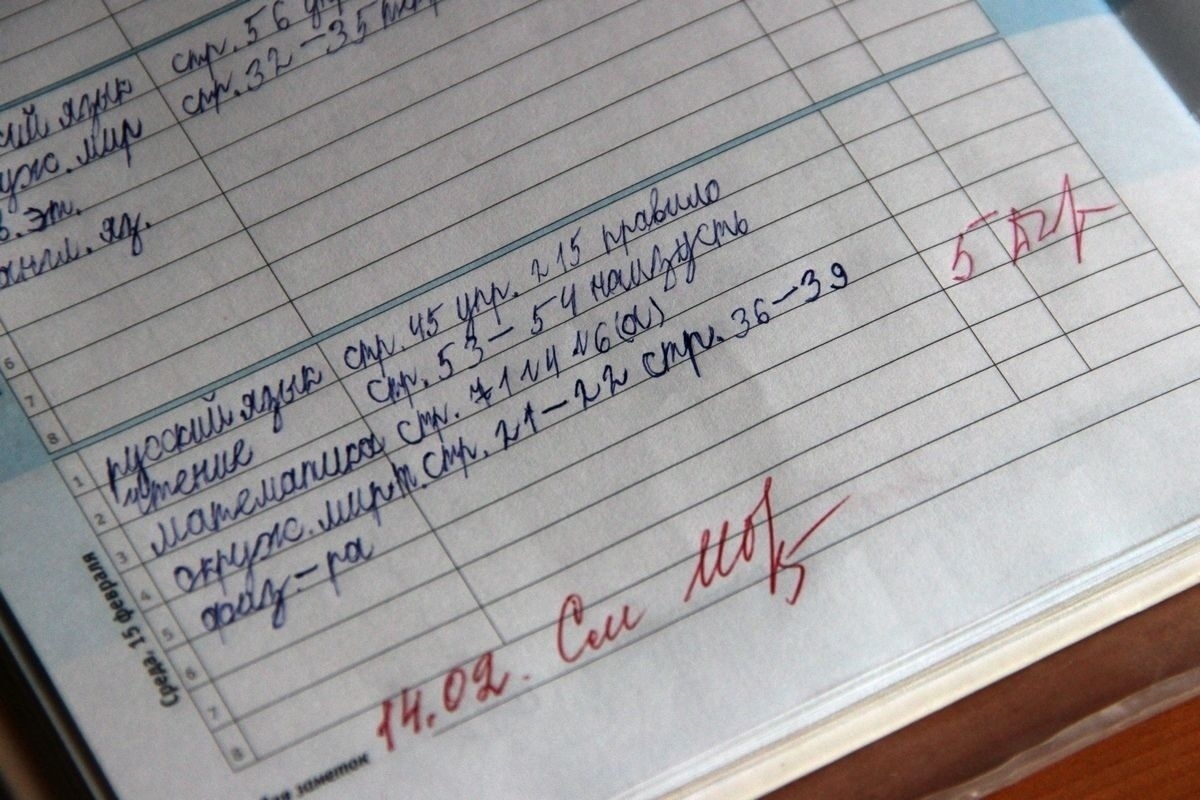 стр. 56 упр
ский язык стр. 32-35
уж. мир
в. эт.
англ. яз.
6
7
8
1 русский язык стр. 45 упр. 215 правило
2 чтение стр. 53-54 наизусть
3 математика стр. 71 №4 №6(а)
4 окруж. мир т. стр. 21-22 стр. 36-39
5 физ-ра
6
7
8
5
Среда, 15 февраля
14.02. См
заметок